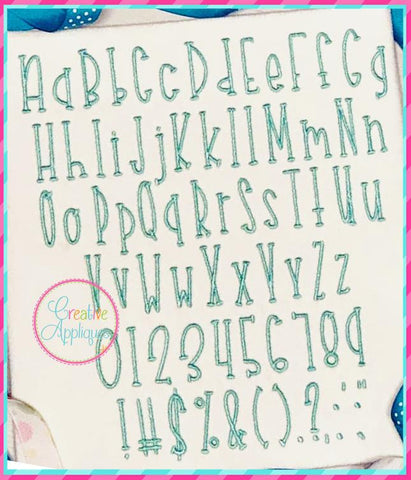 AaBbCcDdEeFfGg
HhIiJjKkLlMmNn
OoPpQqRrSsTtUu
VvWwXxYyZz
Creative
Appliques
0123456789
!#$%&()?